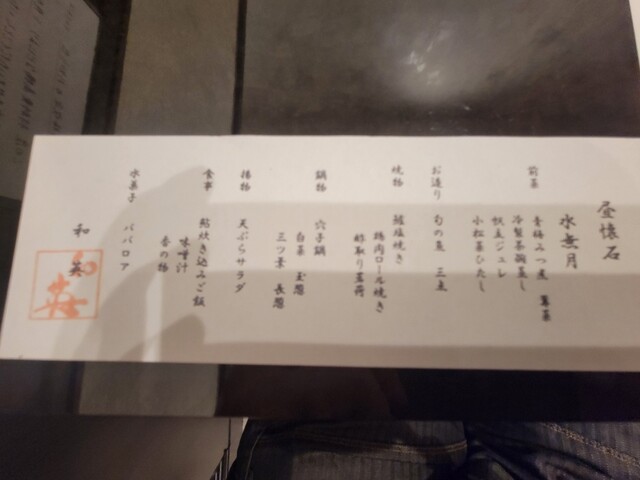 昼懐石
水無月
前菜
青梅みつ煮 蓴菜
冷製茶碗蒸し
帆立ジュレ
小松菜ひたし
お造り 旬の魚 三点
焼物 鱸塩焼き
鶏肉ロール焼き
酢取り茗荷
鍋物 穴子鍋
白菜 玉葱
三つ葉 長葱
揚物 天ぷらサラダ
食事 鮎炊き込みご飯
味噌汁
香の物
水菓子 ババロア
和